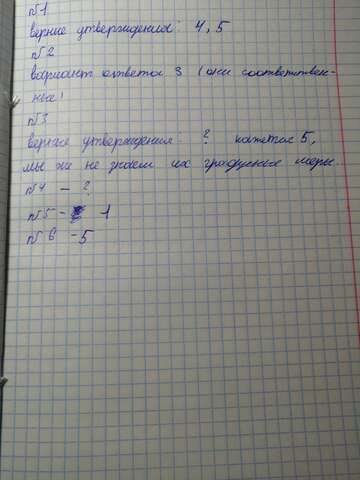 №1
верные утверждения: 4, 5
№2
вариант ответа 3 (они соответствен-
ные)
№3
верные утверждения: ? кажется 5,
мы же не знаем их градусные меры.
№4 – ?
№5 – 1
№6 – 5